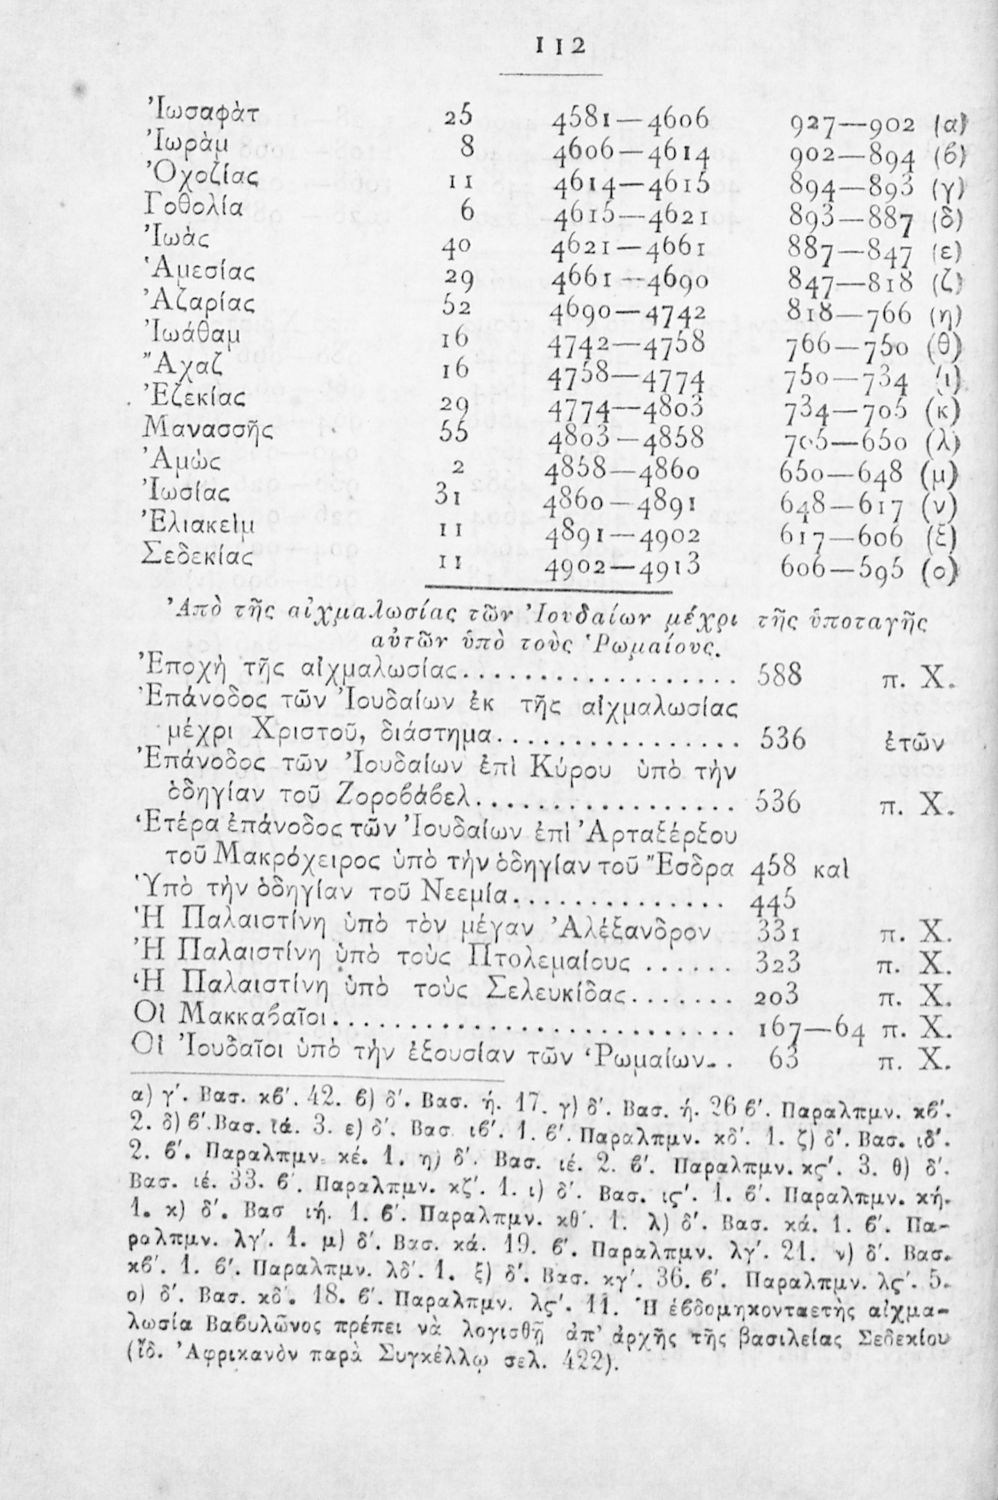 112
Ἰωσαφὰτ 25 4581—4606 927—902 (α)
Ἰωρὰμ 8 4606—4614 902—894 (β)
Ὀχοζίας 11 4614—4615 894—893 (γ)
Γοθολία 6 4615—4621 893—887 (δ)
Ἰωὰς 40 4621—4661 887—847 (ε)
Ἀμεσίας 29 4661—4690 847—818 (ζ)
Ἀζαρίας 52 4690—4742 818—766 (η)
Ἰωάθαμ 16 4742—4758 766—750 (θ)
Ἄχαζ 16 4758—4774 750—734 (ι)
Ἐζεκίας 29 4774—4803 734—705 (κ)
Μανασσῆς 55 4803—4858 705—650 (λ)
Ἀμὼς 2 4858—4860 650—648 (μ)
Ἰωσίας 31 4860—4891 648—617 (ν)
Ἐλιακεὶμ 11 4891—4902 617—606 (ξ)
Σεδεκίας 11 4902—4913 606—595 (ο)
Ἀπὸ τῆς αἰχμαλωσίας τῶν Ἰουδαίων μέχρι τῆς ὑποταγῆς
αὐτῶν ὑπὸ τοὺς Ῥωμαίους.
Ἐποχὴ τῆς αἰχμαλωσίας.................. 588 π. Χ.
Ἐπάνοδος τῶν Ἰουδαίων ἐκ τῆς αἰχμαλωσίας
μέχρι Χριστοῦ, διάστημα................ 536 ἐτῶν
Ἐπάνοδος τῶν Ἰουδαίων ἐπὶ Κύρου ὑπὸ τὴν
ὁδηγίαν τοῦ Ζοροβάβελ................. 536 π. Χ.
Ἑτέρα ἐπάνοδος τῶν Ἰουδαίων ἐπὶ Ἀρταξέρξου
τοῦ Μακρόχειρος ὑπὸ τὴν ὁδηγίαν τοῦ Ἔσδρα 458 καὶ
Ὑπὸ τὴν ὁδηγίαν τοῦ Νεεμία.............. 445
Ἡ Παλαιστίνη ὑπὸ τὸν μέγαν Ἀλέξανδρον 331 π. Χ.
Ἡ Παλαιστίνη ὑπὸ τοὺς Πτολεμαίους ...... 323 π. Χ.
Ἡ Παλαιστίνη ὑπὸ τοὺς Σελευκίδας....... 203 π. Χ.
Οἱ Μακκαβαῖοι........................... 167—64 π. Χ.
Οἱ Ἰουδαῖοι ὑπὸ τὴν ἐξουσίαν τῶν Ῥωμαίων.. 63 π. Χ.
α) γ΄. Βασ. κβ΄. 42. β) δ΄. Βασ. ή. 17. γ) δ΄. Βασ. ή. 26 β΄. Παραλπμν. κβ΄.
2. δ) β΄. Βασ. ιά. 3. ε) δ΄. Βασ. ιβ΄. 1. β΄. Παραλπμν. κδ΄. 1. ζ) δ΄. Βασ. ιδ΄.
2. β΄. Παραλπμν. κέ. 1. η) δ΄. Βασ. ιέ. 2. β΄. Παραλπμν. κς΄. 3. θ) δ΄.
Βασ. ιέ. 33. β΄. Παραλπμν. κζ΄. 1. ι) δ΄. Βασ. ις΄. 1. β΄. Παραλπμν. κή.
1. κ) δ΄. Βασ ιή. 1. β΄. Παραλπμν. κθ΄. 1. λ) δ΄. Βασ. κά. 1. β΄. Πα-
ραλπμν. λγ΄. 1. μ) δ΄. Βασ. κά. 19. β΄. Παραλπμν. λγ΄. 21. ν) δ΄. Βασ.
κβ΄. 1. β΄. Παραλπμν. λδ΄. 1. ξ) δ΄. Βασ. κγ΄. 36. β΄. Παραλπμν. λς΄. 5.
ο) δ΄. Βασ. κδ΄. 18. β΄. Παραλπμν. λς΄. 11. Ἡ ἑβδομηκονταετὴς αἰχμα-
λωσία Βαβυλῶνος πρέπει νὰ λογισθῇ ἀπ' ἀρχῆς τῆς βασιλείας Σεδεκίου
(ἴδ. Ἀφρικανὸν παρὰ Συγκέλλῳ σελ. 422).